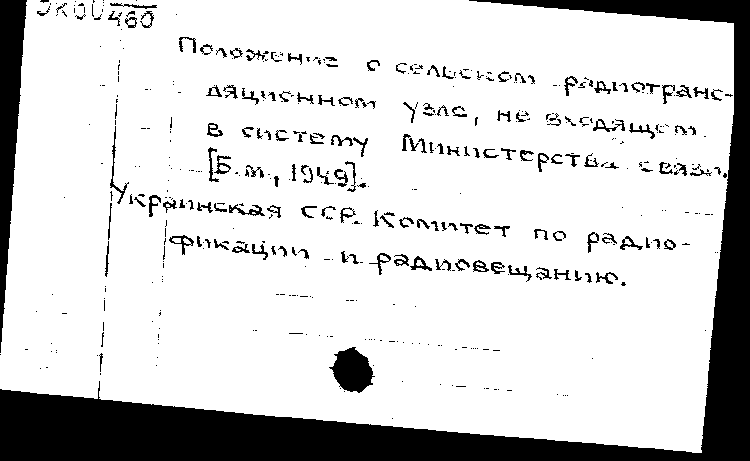 460
Положение о сельском радиотранс-
ляционном узле, не входящем
в систему Министерства связи.
[Б.м., 1949].
Украинская ССР. Комитет по радио-
фикации и радиовещанию.